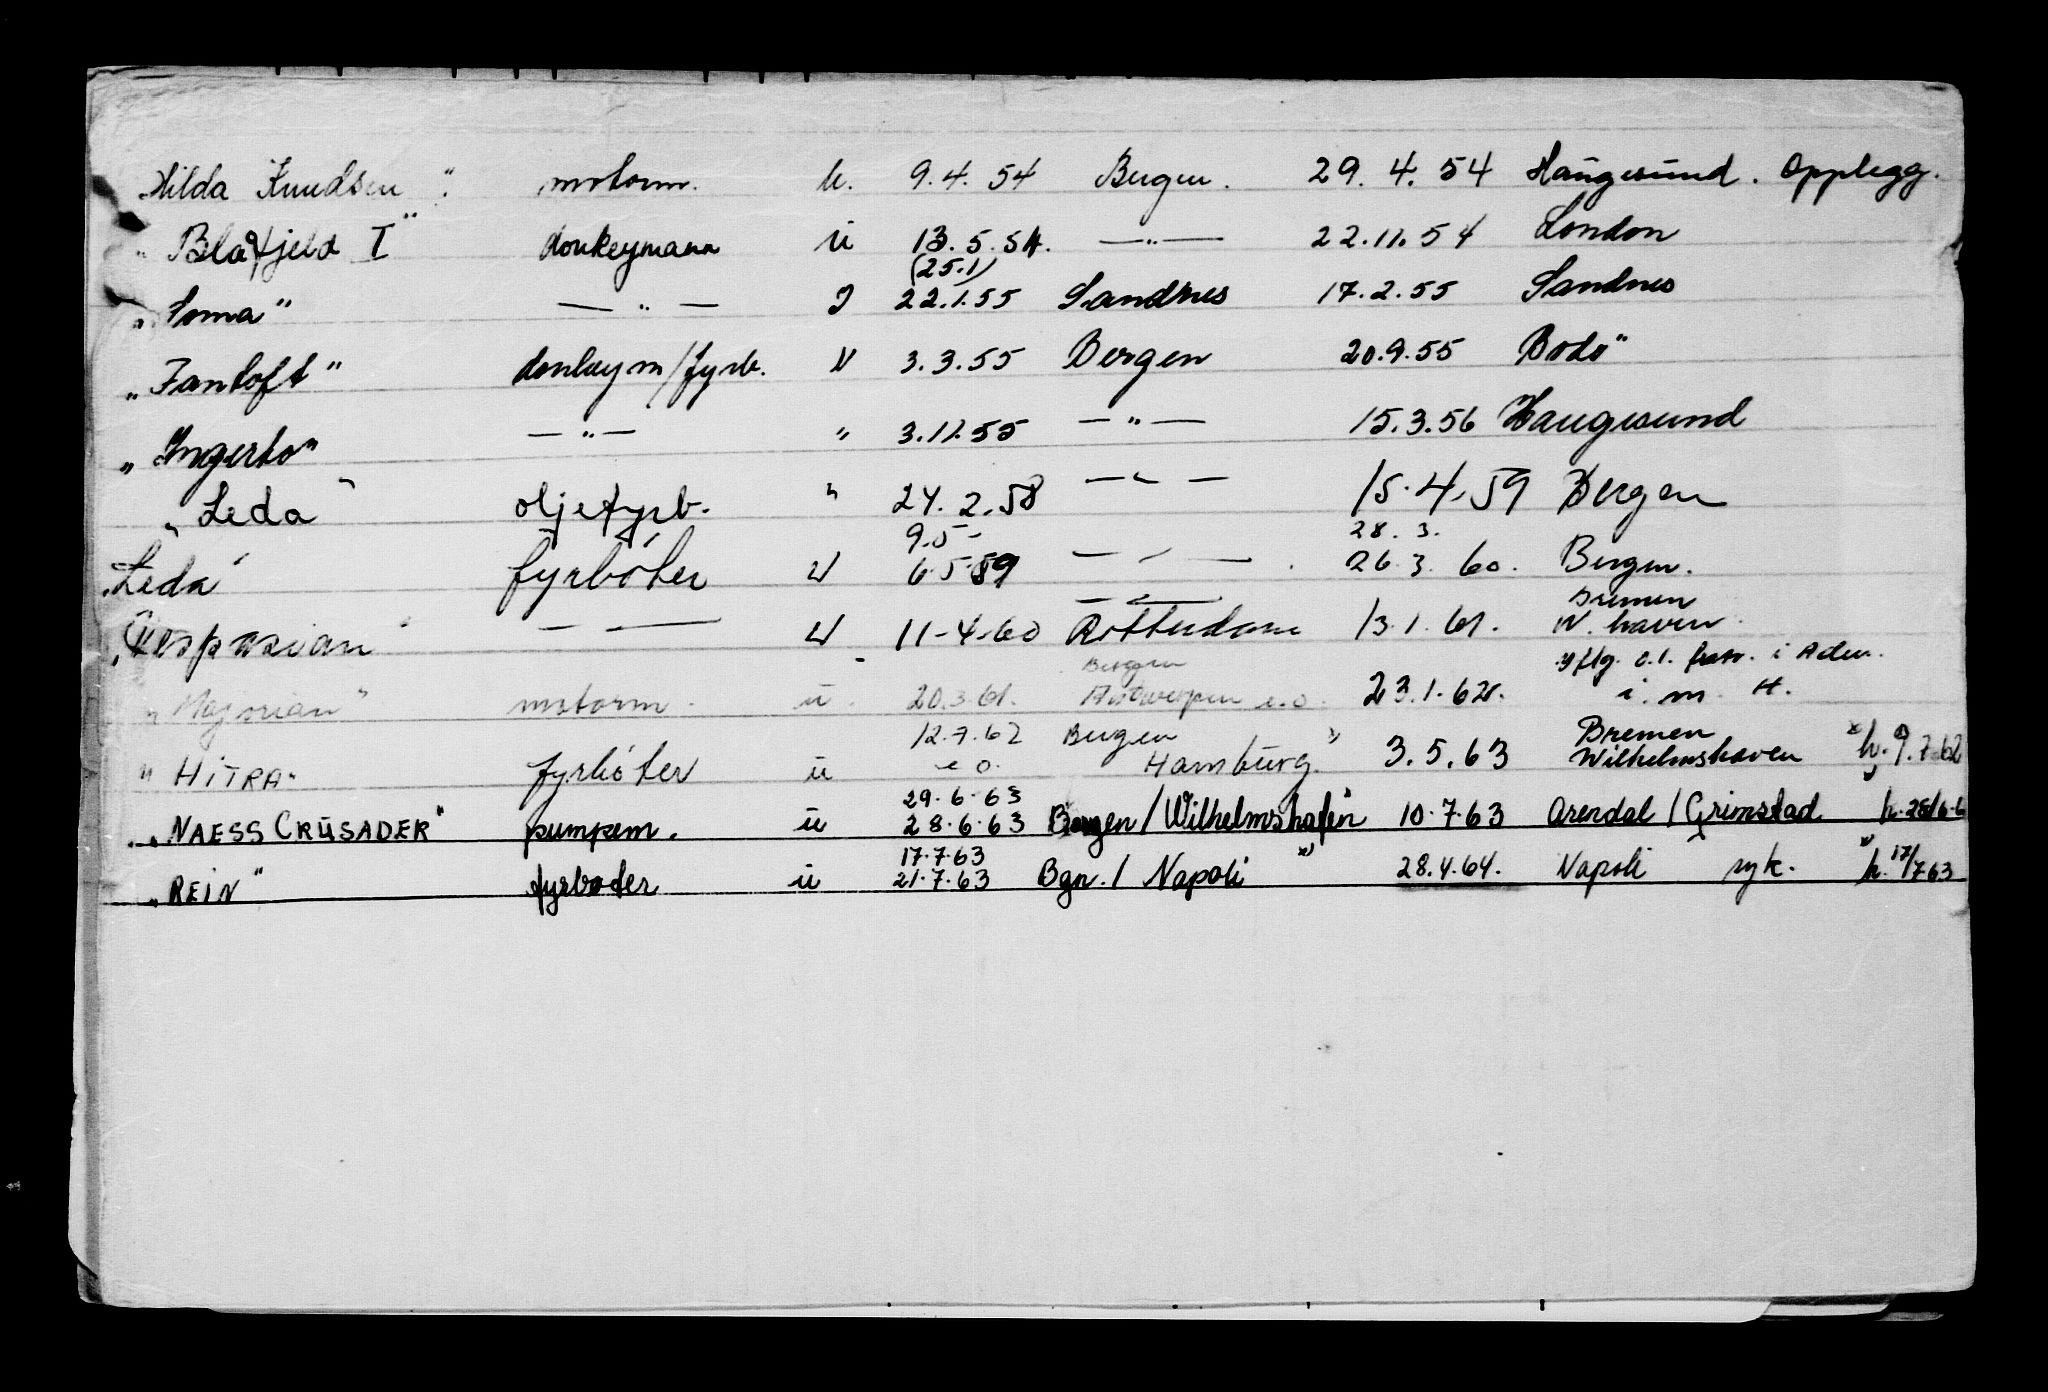 Hilda Knudsen" motorm. u. 9.4.54 Bergen. 29.4.54 Haugesund. Opplegg.
"Blåfjeld I" donkeymann u 13.5.54. —"— 22.11.54 London
(25.1)
"Soma" —"— 22.1.55 Sandnes 17.2.55 Sandnes
"Fantoft" donkeym/fyrb. u 3.3.55 Bergen 20.9.55 Bodö"
"Ingerto" —"— " 3.11.55 —"— 15.3.56 Haugesund
"Leda" oljefyrb. " 24.2.58 —"— 15.4.59 Bergen
9.5- 28.3.
"Leda" fyrbøter u 6.5.59 —"— 26.3.60. Bergen.
Bremen
"Vespasian" —"— u 11-4-60 Rotterdam 13.1.61. W. haven.
Bergen i Aden.
"Majorian" motorm. u. 20.3.61. Antwerpen e.o. 23.1.62. i. m. H.
12.7.62 Bergen Bremen
"HITRA" fyrbøter u e o. Hamburg. x) 3.5.63 Wilhelmshaven x) h. 9.7.62
29.6.63
"NAESS CRUSADER" pumpem. u 28.6.63 Bergen/Wilhelmshafen 10.7.63 Arendal/Grimstad h. 28/6.6
17.7.63
"REIN" fyrbøter u 21.7.63 Bgn./Napoli x) 28.4.64. Napoli syk. x) h. 17/763